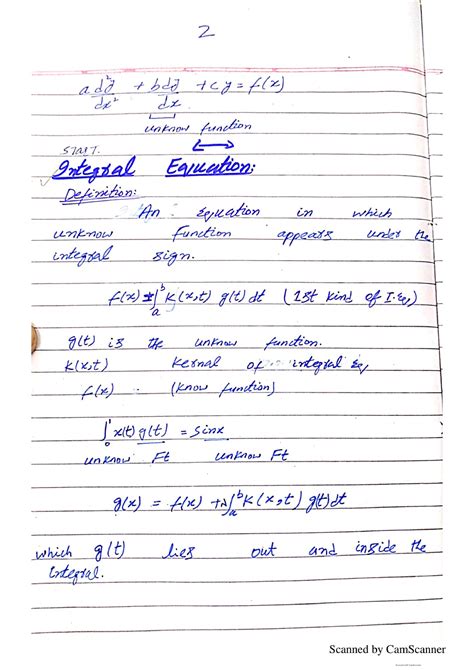 2
a d²y/dx² + b dy/dx + cy = f(x)
unknow function
START.
Integral Equation:
Definition:
An Equation in which
unknow function appears under the
integral sign.
f(x) = ∫ₐᵇ K(x,t) g(t) dt (1st kind of I.Eq)
g(t) is the unknow function.
K(x,t) Kernal of integral Eq
f(x) (Know function)
g(t) = Sinx
unknow Ft unknow Ft
g(x) = f(x) + λ∫ₐᵇ K(x,t) g(t) dt
which g(t) lies out and inside the
Integral.
Scanned by CamScanner